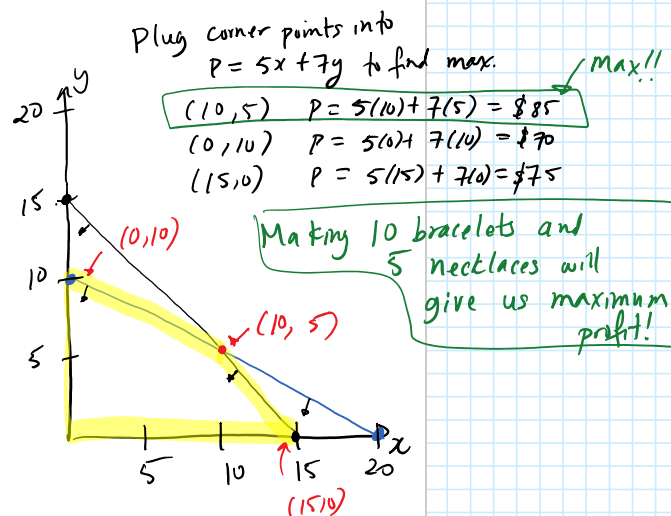 Plug corner points into
P = 5x + 7y to find max.
Max!!
(10,5) P = 5(10) + 7(5) = $85
(0,10) P = 5(0) + 7(10) = $70
(15,0) P = 5(15) + 7(0) = $75
Making 10 bracelets and
5 necklaces will
give us maximum
profit!
y
20
15
(0,10)
10
(10, 5)
5
x
5 10 15 20
(15,0)